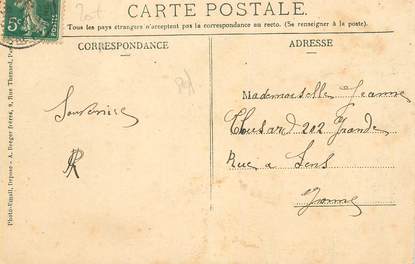 CARTE POSTALE.
Tous les pays étrangers n'acceptent pas la correspondance au recto. (Se renseigner à la poste).
CORRESPONDANCE
ADRESSE
5c
Souvenirs
Mademoiselle Jeanne
202 Grande
Rue a Sens
Yonne
Photo-Email, Depose - A. Berger frères, 9, Rue Thénard,